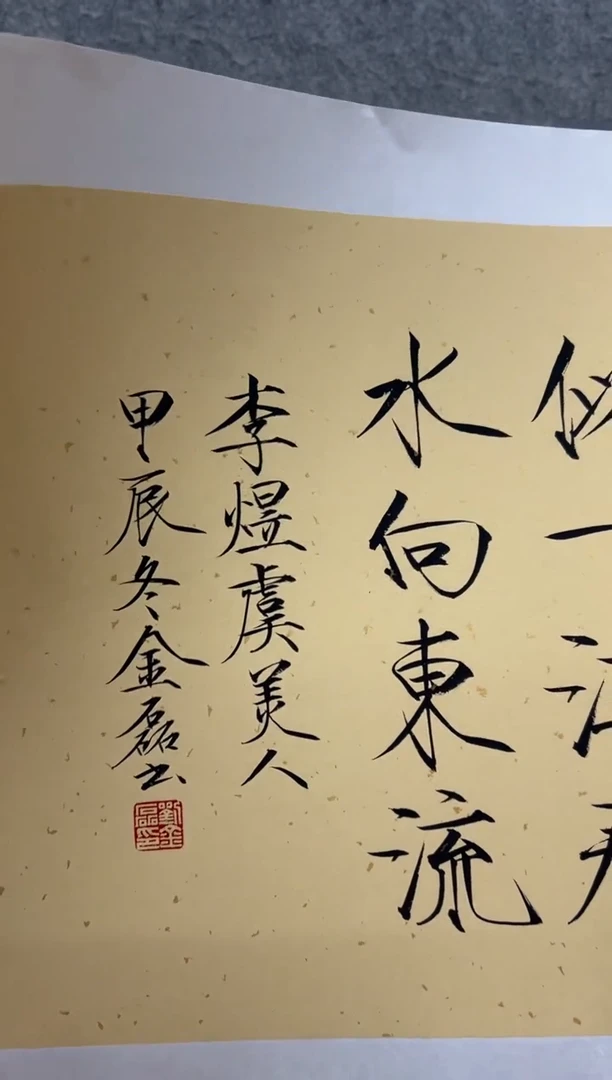 似一江春
水向東流
李煜虞美人
甲辰冬金磊书
劉金磊印